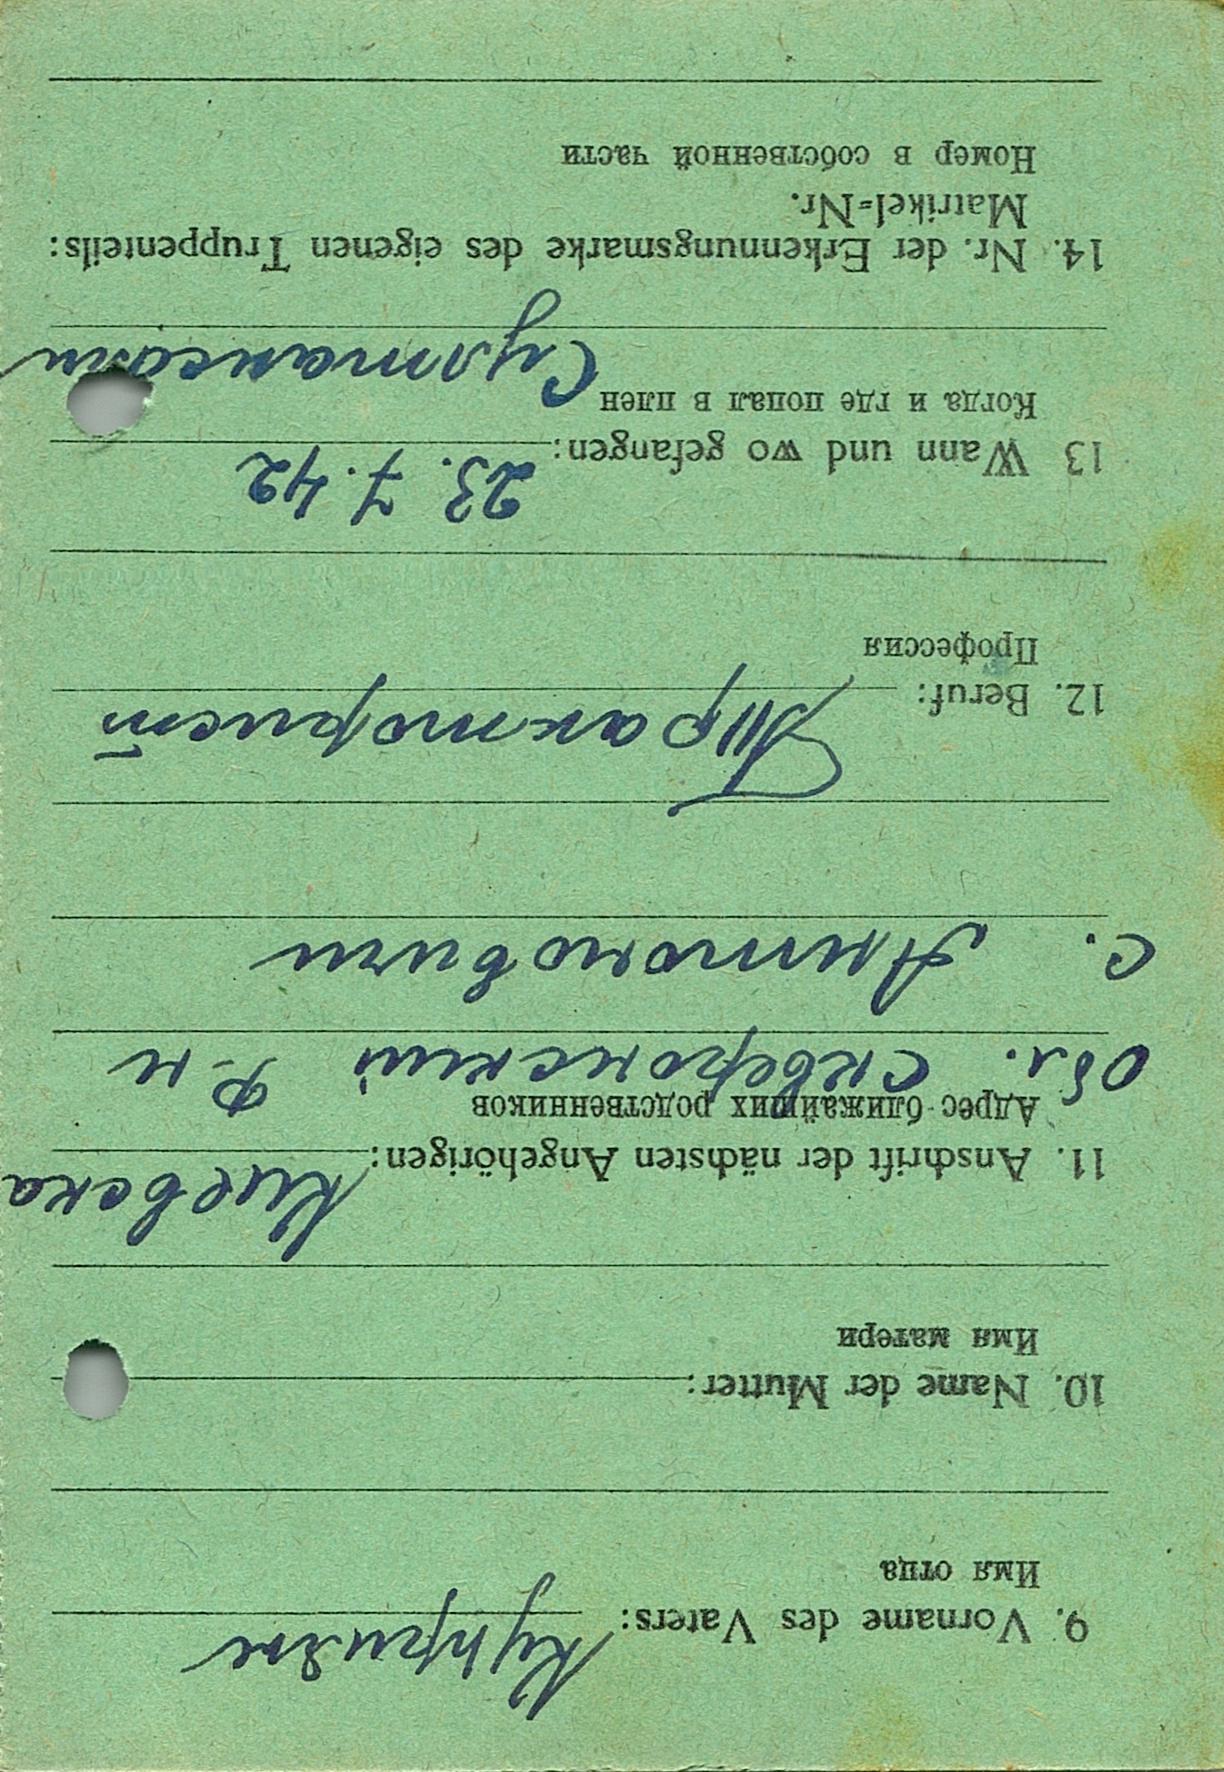 9. Vorname des Vaters: Куприян
Имя отца
10. Name der Mutter:
Имя матери
11. Anschrift der nächsten Angehörigen: Киевска
Адрес ближайших родственников
Обл. Скверонский р-н
с. Антоновичи
12. Beruf: Тракторист
Профессия
13 Wann und wo gefangen: 23. 7. 42
Когда и где попал в плен Султансали
14. Nr. der Erkennungsmarke des eigenen Truppenteils:
Matrikel-Nr.
Номер в собственной части